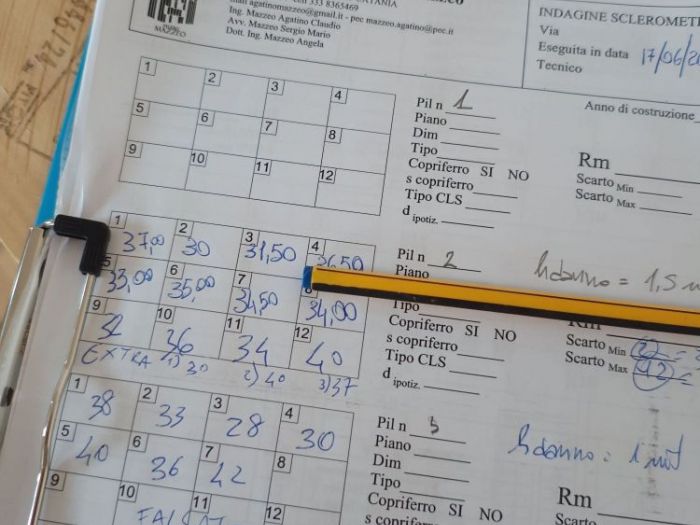 cell 333 8365469
mail agatinomazzeo@gmail.it - pec mazzeo.agatino@pec.it
Ing. Mazzeo Agatino Claudio
Avv. Mazzeo Sergio Mario
Dott. Ing. Mazzeo Angela
MAZZEO
INDAGINE SCLEROMET
Via
Eseguita in data 17/06/20
Tecnico
Anno di costruzione
1 2 3 4
5 6 7 8
9 10 11 12
Pil n 1
Piano
Dim
Tipo
Copriferro SI NO
s copriferro
Tipo CLS
d ipotiz.
Rm
Scarto Min
Scarto Max
1 37,00 2 30 3 31,50 4 36,50
5 33,00 6 35,00 7 34,50 8 34,00
9 32 10 36 11 34 12 40
EXTRA 1) 30 2) 40 3) 37
Pil n 2
Piano
Tipo
Copriferro SI NO
s copriferro
Tipo CLS
d ipotiz.
h danno = 1,5 m
Rm
Scarto Min 22
Scarto Max 42
1 38 2 33 3 28 4 30
5 40 6 36 7 42 8
10 11
Pil n 3
Piano
Dim
Tipo
Copriferro SI NO
s copriferro
h danno = 1 mt
Rm
Scarto Min